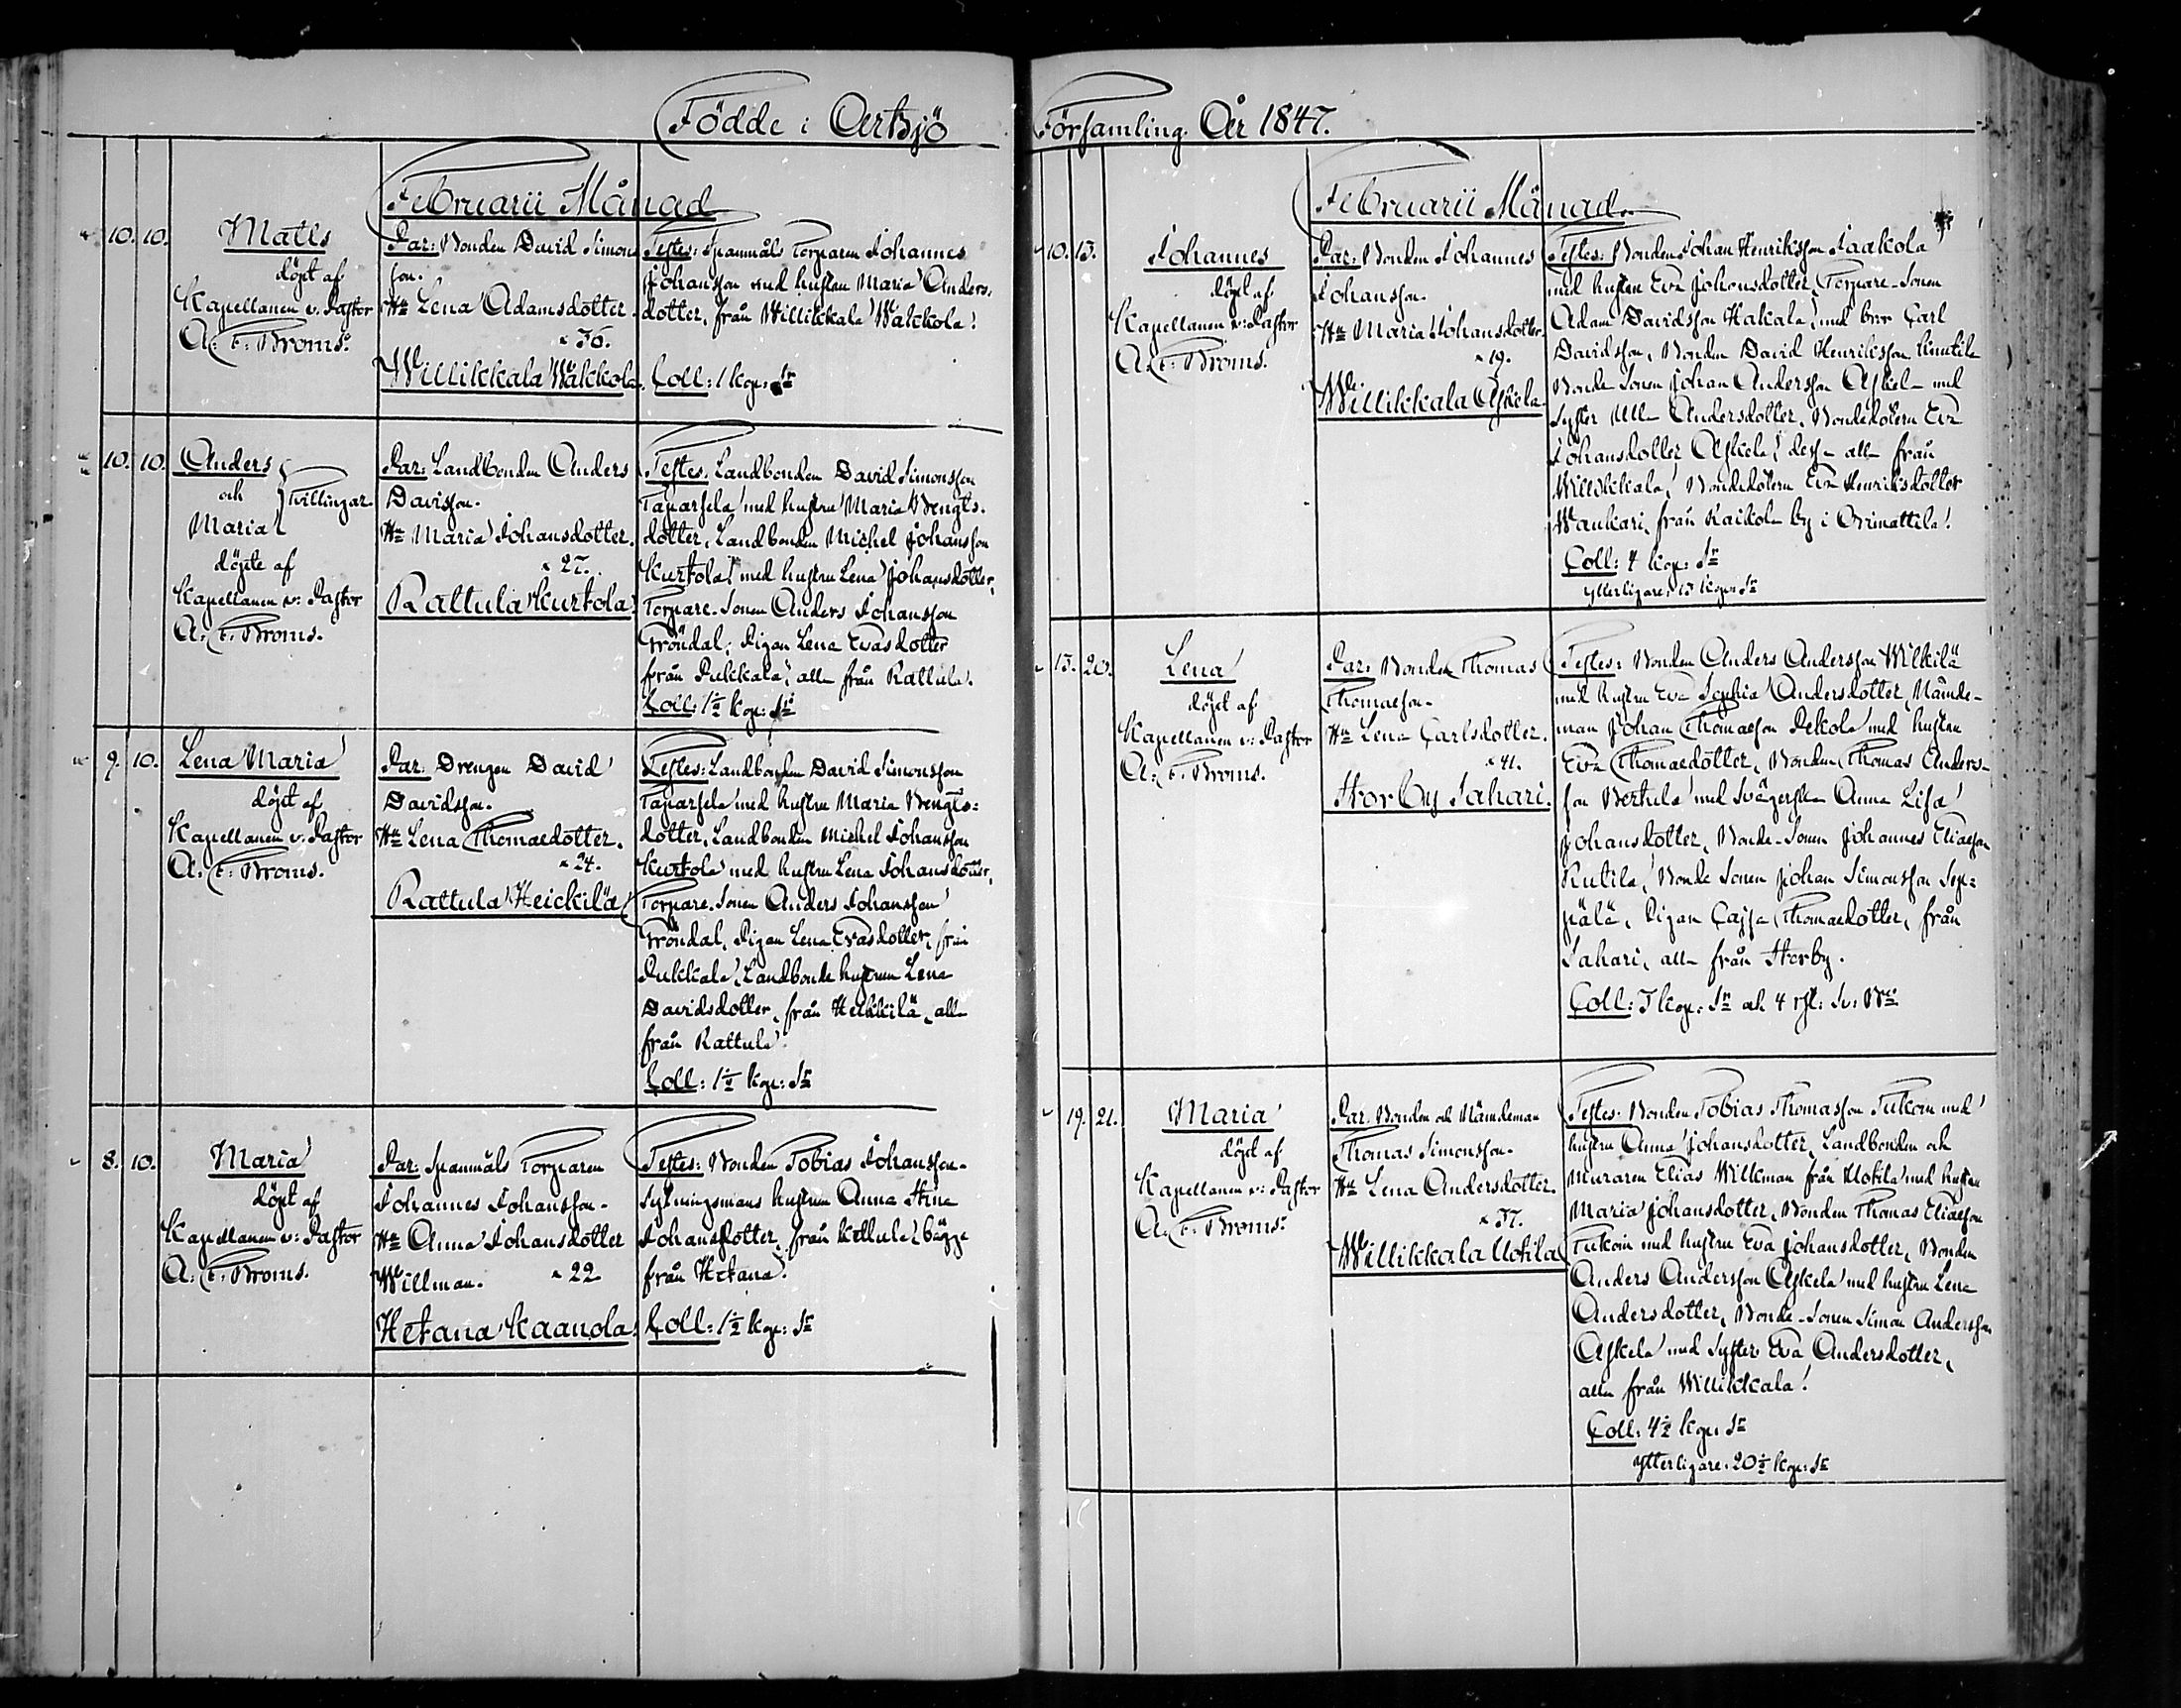 Födde i Artsjö
Församling År 1847.
Februarii Månad
10. 10.
Matts
döpt af
Kapellanen v. Pastor
A. F. Broms.
Par: Bonden David Simons
son.
Hu Lena Adamsdotter.
36.
Willikkala Wäkkola.
Testes: Spannmåls Torparen Johannes
Johansson med hustru Maria Anders
dotter, från Willikkala Wäkkola.
Coll: 1 kop: Sr
10. 10.
Anders
och Tvillingar
Maria
döpte af
Kapellanen v: Pastor
A. F. Broms.
Par: Landbonden Anders
Davisson.
Hu Maria Johansdotter.
27.
Rattula Kurtola
Testes: Landbonden David Simonsson
Taparsela med hustru Maria Bengts-
dotter, Landbonden Michel Johansson
Kurtola med hustru Lena Johansdotter,
Torpare-Sonen Anders Johansson
Gröndal, Pigan Lena Evasdotter
från Pukkala, alla från Rattula.
Coll: 1½ kop: Sr
9. 10.
Lena Maria
döpt af
Kapellanen v. Pastor
A. F. Broms.
Par: Drengen David
Davidsson.
Hu Lena Thomaedotter.
24.
Rattula Heickilä
Testes: Landbonden David Simonsson
Taparsela med hustru Maria Bengts=
dotter, Landbonden Michel Johansson
Kurtola med hustru Lena Johansdotter,
Torpare-Sonen Anders Johansson
Gröndal, Pigan Lena Evasdotter, från
Pukkala, Landbonde hustrun Lena
Davidsdotter, från Heikkilä, alla
från Rattula.
Coll: 1½ kop: Sr
8. 10.
Maria
döpt af
Kapellanen v: Pastor
A. F. Broms.
Par: Spannmåls Torparen
Johannes Johansson.
Hu Anna Johansdotter
Willman. 22
Hetana Kaanola.
Testes: Bonden Tobias Johansson
hustrun Anna Stina
Johansdotter, från bägge
från Hetana.
Coll: 1½ kop: Sr
Februarii Månad.
10. 13.
Johannes
döpt af
Kapellanen v: Pastor
A. F. Broms.
Par: Bonden Johannes
Johansson.
Hu Maria Johansdotter.
19.
Willikkala Askela.
Testes: Bonden Johan Henriksson Jaakola
med hustru Eva Johansdotter, Torpare-Sonen
Adam Davidsson Hakala, med bror Carl
Davidsson, Bonden David Henriksson
Bonde-Sonen Johan Andersson Askela med
Syster Ulla Andersdotter, Bondedotern Eva
Johansdotter Askela, dessa alla från
Willikkala, Bondedotern Eva Henriksdotter
Waukari, från Kaikola by i Orimattila.
Coll: 4 kop: Sr
ytterligare. 13 kop: Sr
13. 20.
Lena
döpt af
Kapellanen v: Pastor
A. F. Broms.
Par: Bonden Thomas
Thomaeson.
Hu Lena Carlsdotter.
41.
Storby Sahari.
Testes: Bonden Anders Andersson Wilkilä
med hustru Eva Sophia Andersdotter, Nämde-
man Johan Thomaeson Pekola med hustru
Eva Thomaedotter, Bonden Thomas Anders-
son Bertula med Svägerskan Anna Lisa
Johansdotter, Bonde-Sonen Johannes Eliaeson
Rutila, Bonde Sonen Johan Simonsson Sep=
pälä, Pigan Cajsa Thomaedotter, från
Sahari, alla från Storby.
Coll: 3 kop: Sr och 4 Bco
19. 21.
Maria
döpt af
Kapellanen v: Pastor
A. F. Broms.
Par: Bonden och Nämdeman
Thomas Simonsson.
Hu Lena Andersdotter.
37.
Willikkala Uotila
Testes: Bonden Tobias Thomasson Tukoin med
hustru Anna Johansdotter, Landbonden och
Muraren Elias Willman från Uotila med hustru
Maria Johansdotter, Bonden Thomas Eliaeson
Tukoin med hustru Eva Johansdotter, Bonden
Anders Andersson Askela med hustru Lena
Andersdotter, Bonde-Sonen Simon Andersson
Askela med Syster Eva Andersdotter,
alla från Willikkala.
Coll: 4½ kop: Sr
ytterligare. 20½ kop: Sr